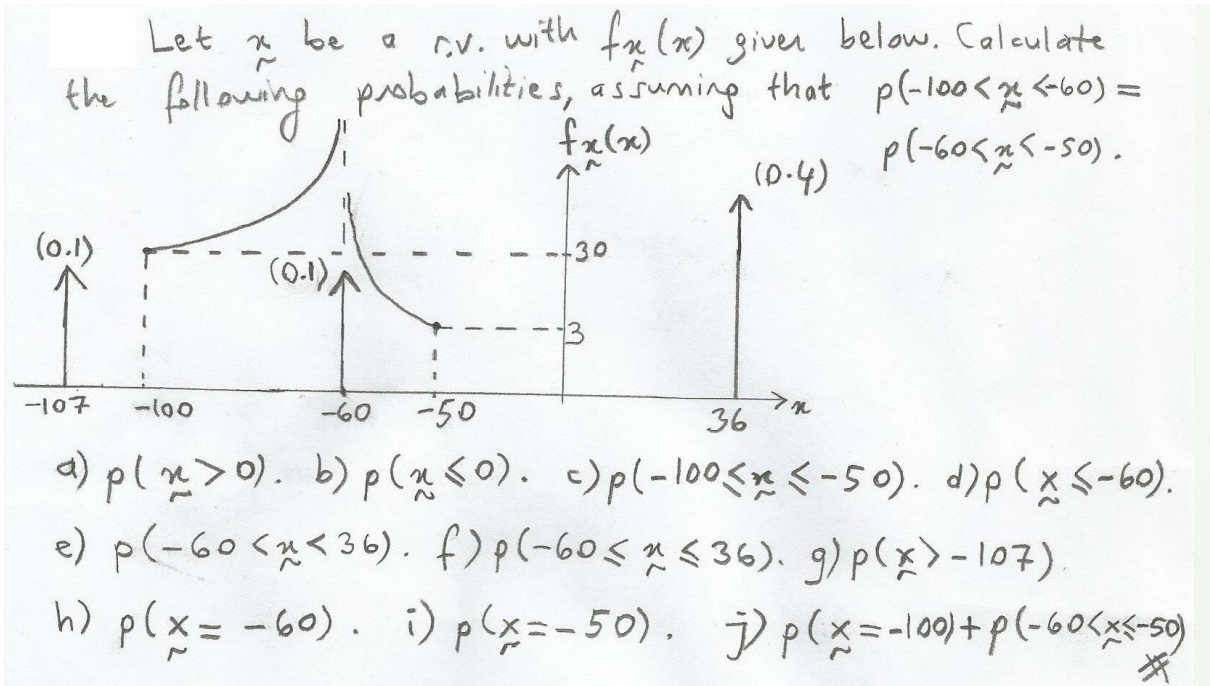 Let x be a r.v. with fx(x) given below. Calculate
the following probabilities, assuming that p(-100<x<-60)=
p(-60<x<-50).
fx(x)
(0.4)
(0.1)
30
(0.1)
3
-107 -100 -60 -50 36 x
a) p(x>0). b) p(x≤0). c) p(-100≤x≤-50). d) p(x≤-60).
e) p(-60<x<36). f) p(-60≤x≤36). g) p(x>-107)
h) p(x=-60). i) p(x=-50). j) p(x=-100)+p(-60<x≤-50)